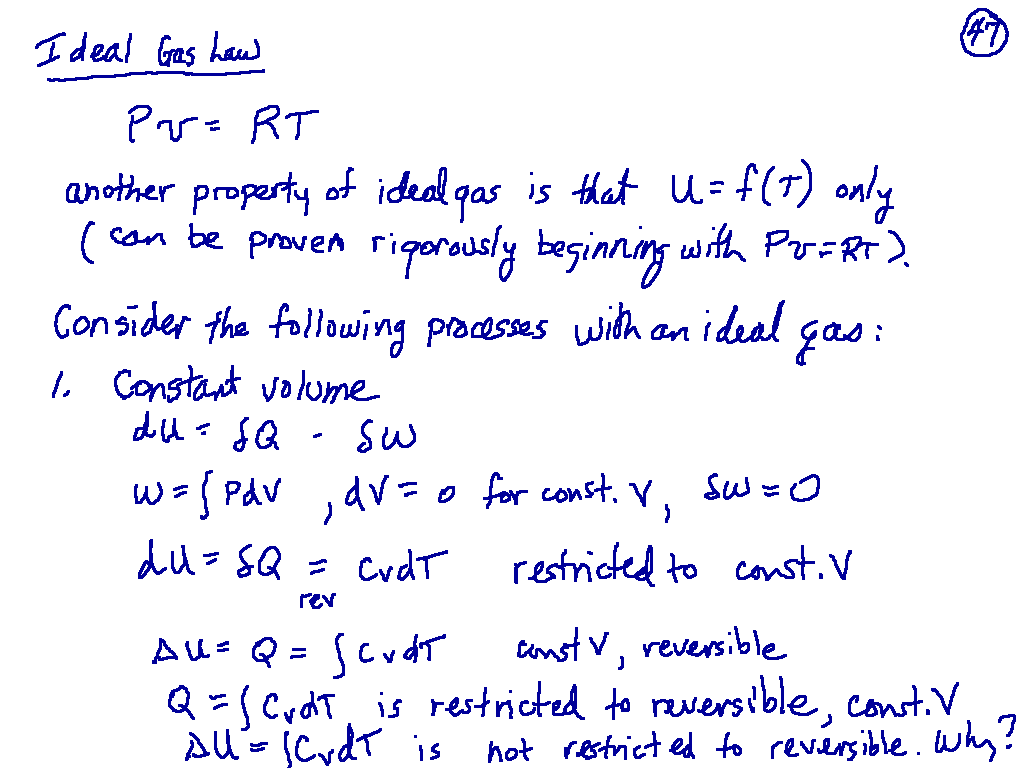 47
Ideal Gas Law
Pv = RT
another property of ideal gas is that U = f(T) only
(can be proven rigorously beginning with Pv=RT).
Consider the following processes with an ideal gas:
1. Constant volume
dU = δQ - δW
W = ∫ PdV , dV = 0 for const. V, δW = 0
dU = δQ = CvdT restricted to const. V
rev
ΔU = Q = ∫CvdT const V, reversible
Q = ∫CvdT is restricted to reversible, const. V
ΔU = ∫CvdT is not restricted to reversible. Why?